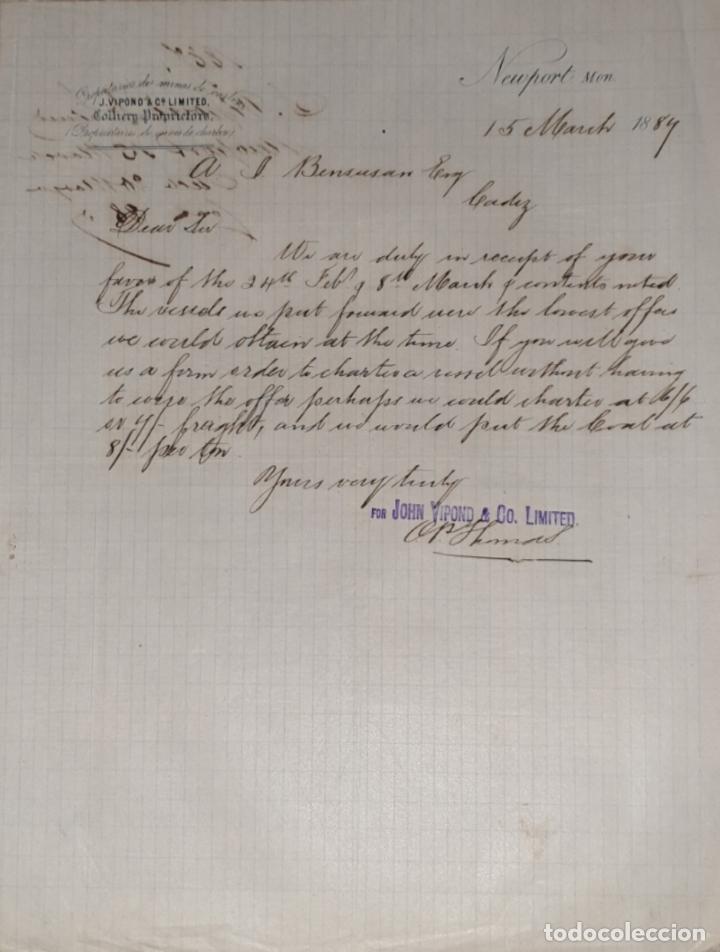 Newport Mon
J. VIPOND & Co LIMITED,
Colliery Proprietors.
15 March 1889
A J Bensusan Esq
Cadiz
Dear Sir
We are duly in receipt of your
favor of the 24th Feby & 8th March & contents noted.
The vessels we put forward were the lowest offers
we could obtain at the time. If you will give
us a firm order to charter a vessel without having
to wire the offer perhaps we could charter at 6/6
or 7/- freight, and we would put the Coal at
8/- per ton
Yours very truly
FOR JOHN VIPOND & CO. LIMITED.
Thomas
todocoleccion.net